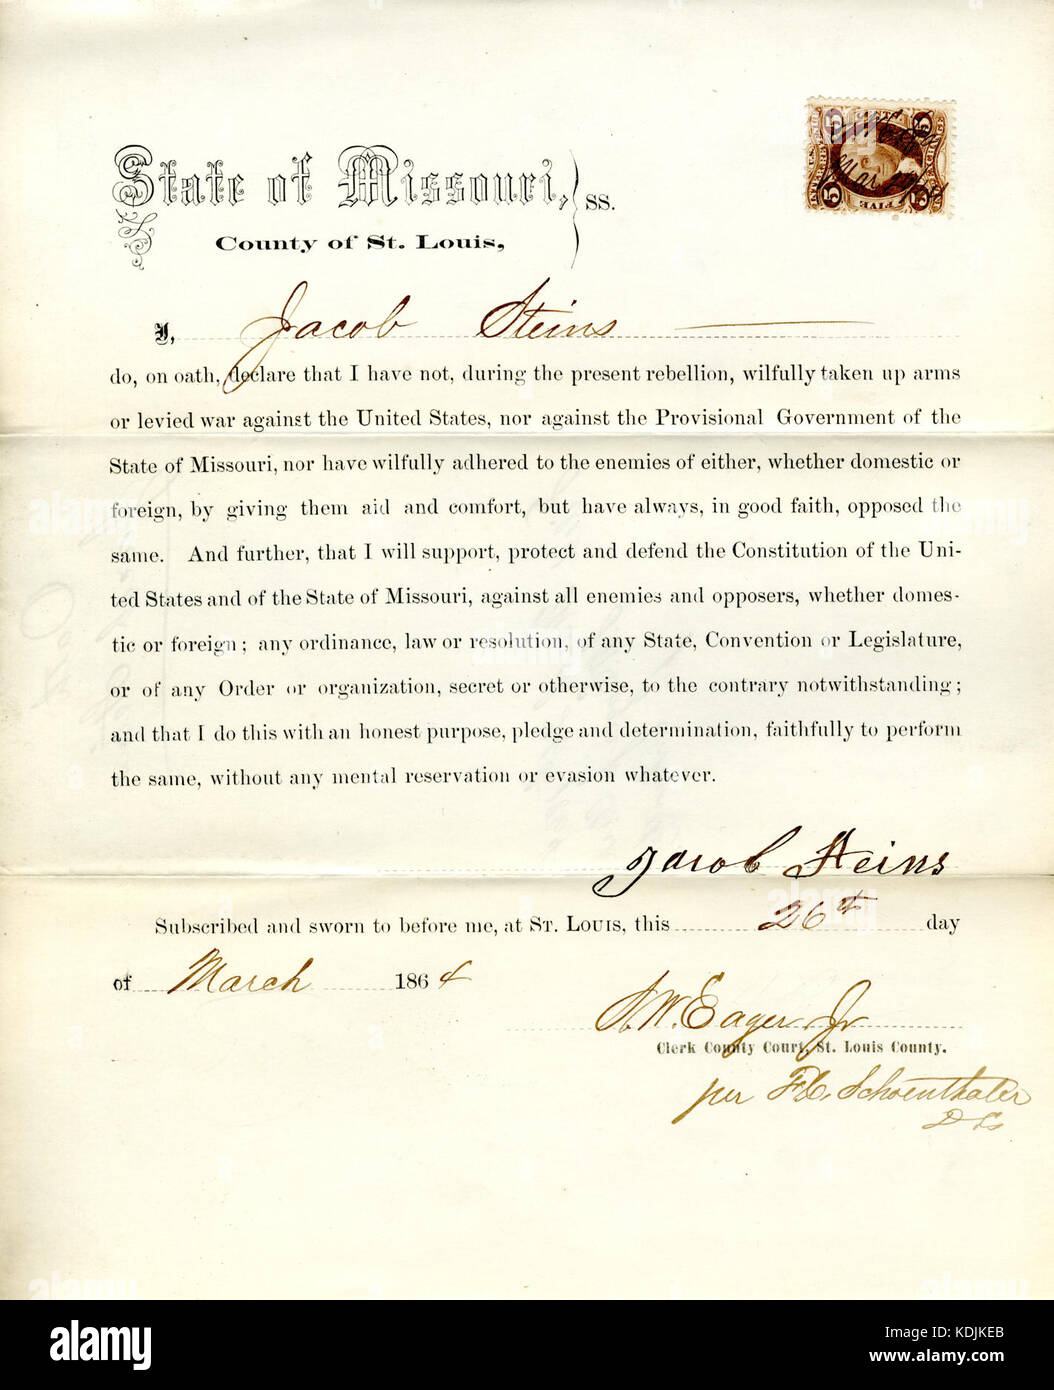 State of Missouri, } SS.
County of St. Louis,
5 5
INTER. REV. EXCHANGE
5 FIVE 5
I, Jacob Steins
do, on oath, declare that I have not, during the present rebellion, wilfully taken up arms
or levied war against the United States, nor against the Provisional Government of the
State of Missouri, nor have wilfully adhered to the enemies of either, whether domestic or
foreign, by giving them aid and comfort, but have always, in good faith, opposed the
same. And further, that I will support, protect and defend the Constitution of the Uni-
ted States and of the State of Missouri, against all enemies and opposers, whether domes-
tic or foreign; any ordinance, law or resolution, of any State, Convention or Legislature,
or of any Order or organization, secret or otherwise, to the contrary notwithstanding;
and that I do this with an honest purpose, pledge and determination, faithfully to perform
the same, without any mental reservation or evasion whatever.
Jacob Steins
Subscribed and sworn to before me, at St. Louis, this 26th day
of March 1864
S. W. Eager Jr
Clerk County Court, St. Louis County.
per F.C. Schoenthaler
D Cs
alamy
Image ID: KDJKEB
www.alamy.com